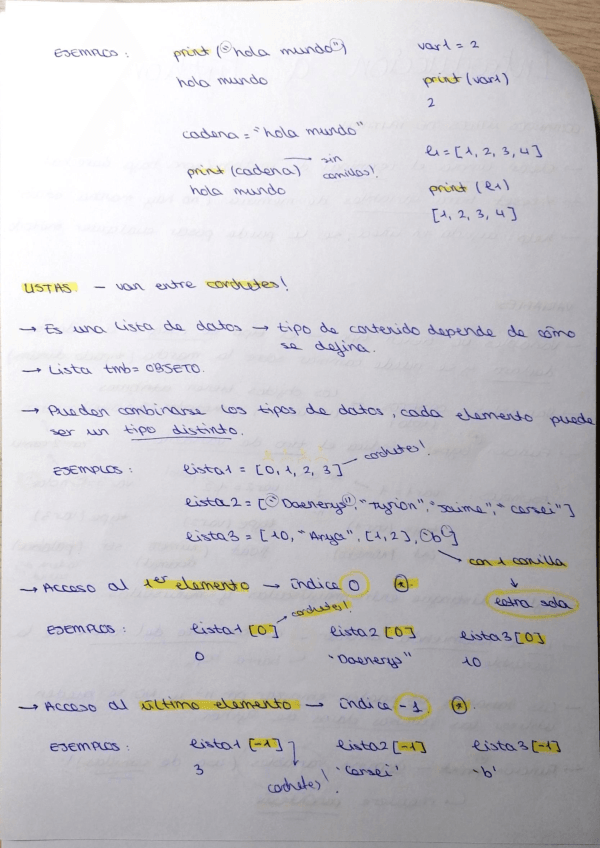 EJEMPLOS: print("hola mundo") var1 = 2
hola mundo print(var1)
2
cadena = "hola mundo" l1 = [1, 2, 3, 4]
print(cadena) → sin comillas! print(l1)
hola mundo [1, 2, 3, 4]
LISTAS - van entre corchetes!
→ Es una lista de datos → tipo de contenido depende de cómo
se defina.
→ Lista tmb = OBJETO.
→ Pueden combinarse los tipos de datos, cada elemento puede
ser un tipo distinto.
EJEMPLOS: lista1 = [0, 1, 2, 3] corchetes!
lista2 = ["Daenerys", "Tyrion", "Jaime", "Cersei"]
lista3 = [10, "Arya", [1, 2], 'b']
con 1 comilla
↓
letra sola
→ Acceso al 1er elemento → índice 0 *.
corchetes!
EJEMPLOS: lista1[0] lista2[0] lista3[0]
0 'Daenerys" 10
→ Acceso al último elemento → índice -1 *.
EJEMPLOS: lista1[-1] lista2[-1] lista3[-1]
3 'Cersei' 'b'
cochetes!